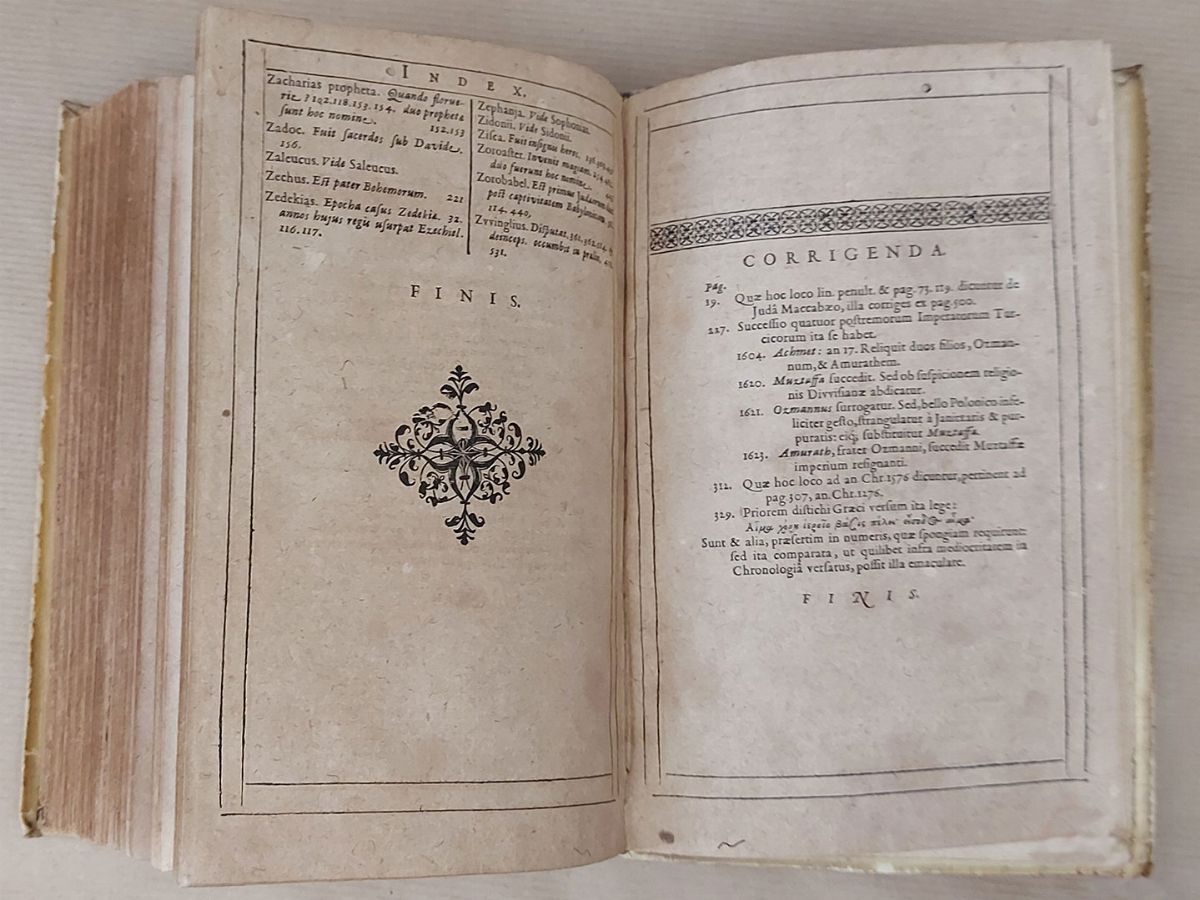 INDEX.
Zacharias propheta. Quando florue-
rit? 102.118.153.154. duo prophetæ
sunt hoc nomine. 152.153
Zadoc. Fuit sacerdos sub Davide.
156.
Zaleucus. Vide Saleucus.
Zechus. Est pater Bohemorum. 221
Zedekias. Epocha casus Zedekiæ. 32.
annos hujus regis usurpat Ezechiel.
116.117.
Zephanja. Vide Sophonias.
Zidonii. Vide Sidonii.
Zisca. Fuit insignis heros.
Zoroaster. Invenit magiam.
duo fuerunt hoc nomine.
Zorobabel. Est primus Judæorum
post captivitatem Babylonicam,
114.440,
Zvvinglius. Disputat, 361.362.
deinceps. occumbit in prælio,
531.
FINIS.
CORRIGENDA.
Pag.
19. Quæ hoc loco lin. penult. & pag. 73. 119. dicuntur de
Judâ Maccabæo, illa corriges ex pag. 500.
227. Successio quatuor postremorum Imperatorum Tur-
cicorum ita se habet.
1604. Achmet: an 17. Reliquit duos filios, Ozman-
num, & Amurathem.
1620. Mustaffa succedit. Sed ob suspicionem religio-
nis Divvisianæ abdicatur.
1621. Ozmannus surrogatur. Sed, bello Polonico infe-
liciter gesto, strangulatur à Janitzaris & pur-
puratis: eiq; substituitur Mustaffa.
1623. Amurath, frater Ozmanni, succedit Mustaffæ
imperium resignanti.
312. Quæ hoc loco ad an. Chr. 1576 dicuntur, pertinent ad
pag. 307, an. Chr. 1276.
329. Priorem distichi Græci versum ita lege:
Sunt & alia, præsertim in numeris, quæ spongiam requirunt:
sed ita comparata, ut quilibet infra mediocritatem in
Chronologiâ versatus, possit illa emaculare.
FINIS.